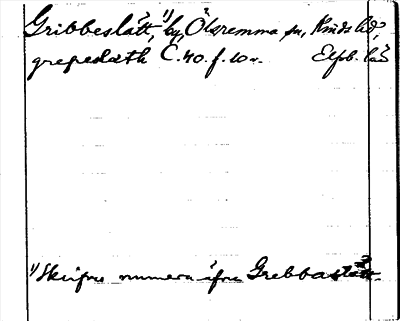 Gribbeslätt,¹⁾ by, Öxremma sn, Kinds hd,
grepeslæth C. 40. f. 10 Elfsb. län
¹⁾ Skrifves numera äfven Grebbaslätt.